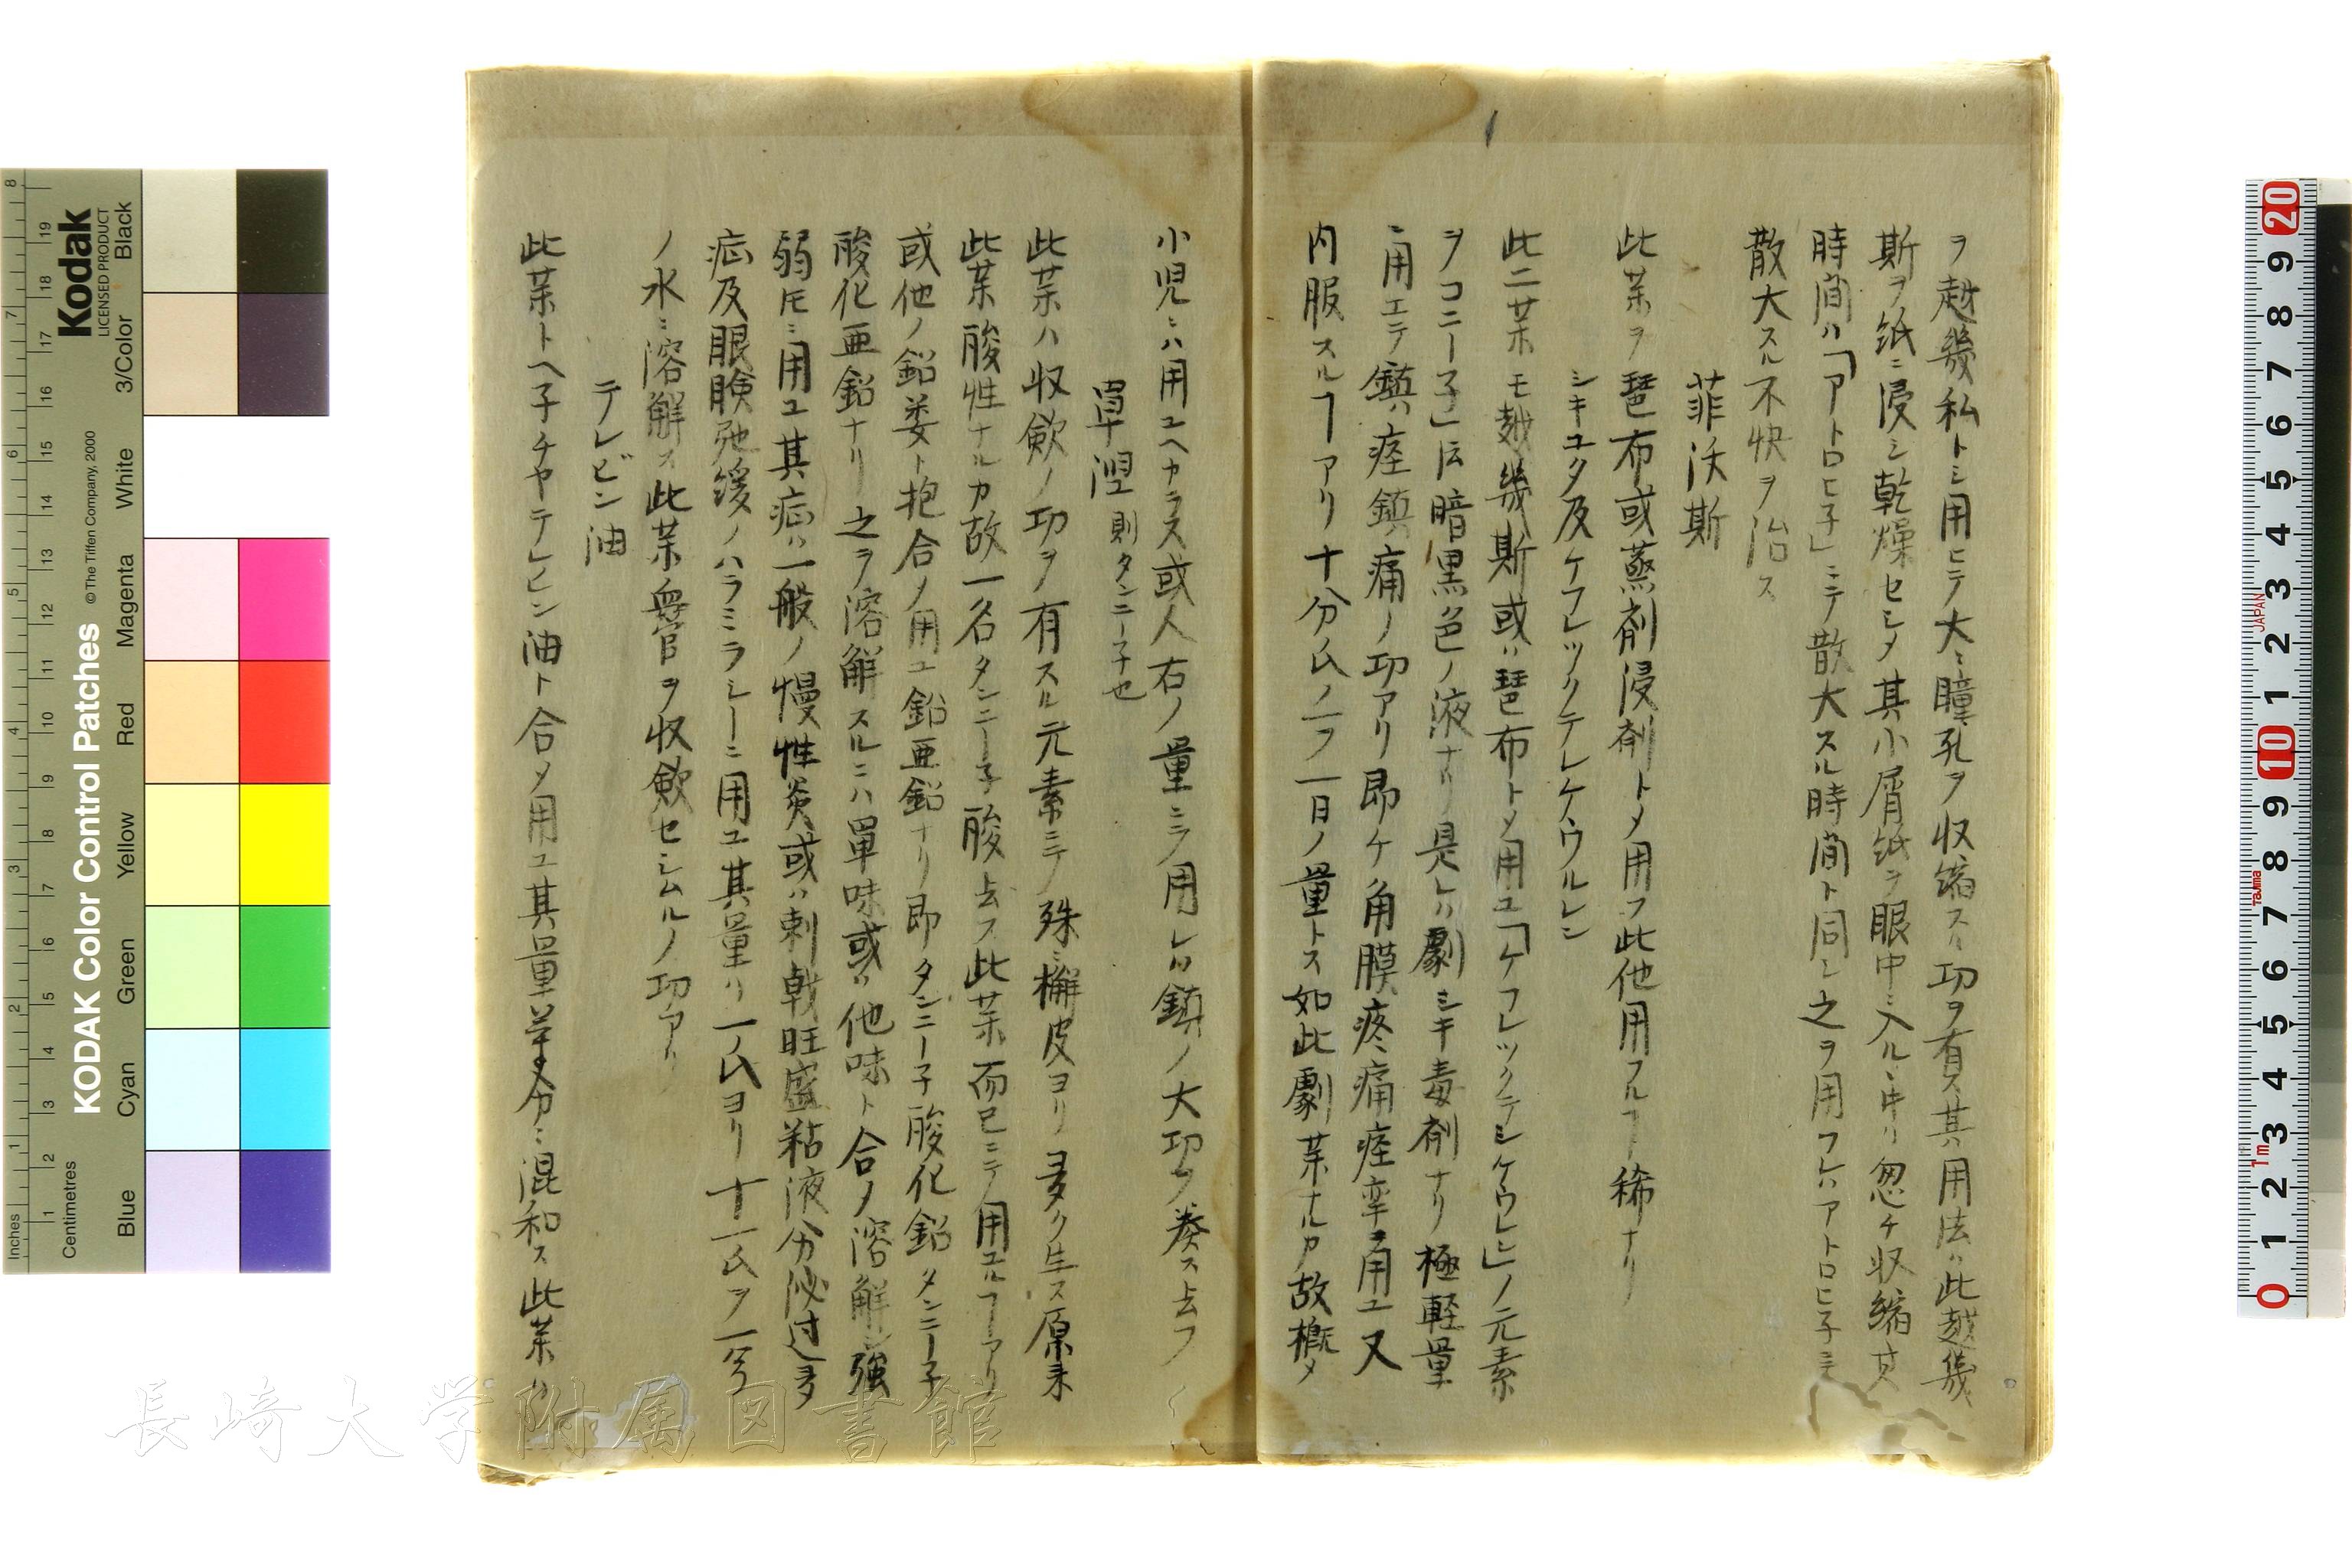 ヲ越幾私トシ用ヒテ大ニ瞳孔ヲ収縮スル功ヲ有ス其用法ハ此越幾
斯ヲ紙ニ浸シ乾燥セシメ其小屑紙ヲ眼中ニ入ルヽ中リ忽チ収縮ス其
時間ハ「アトロヒ子」ニテ散大スル時間ト同シ之ヲ用フレハアトロヒ子ニテ
散大スル不快ヲ治ス
菲沃斯
此茉ヲ琶布或蒸剤浸剤トメ用フ此他用フルヿ稀ナリ
シキユタ及ケフレックテレケウルレン
此二茉モ越幾斯或ハ琶布トメ用ユ「ケフレックテシケウレヒ」ノ元素
ヲコニー子」云暗黒色ノ液ナリ是レハ劇シキ毒剤ナリ極軽量
ニ用エテ鎮痙鎮痛ノ功アリ即ケ角膜疼痛痙挛ニ用ユ又
内服スルヿアリ十分氏ノ一ヲ一日ノ量トス如此劇茉ナルカ故概メ
小児ニハ用ユヘカラス或人右ノ量ニテ用レハ鎮ノ大功ヲ奏ス去フ
單涅 則タンニー子也
此茉ハ収斂ノ功ヲ有スル元素ニテ殊ニ檞皮ヨリ多ク生ス原来
此茉酸性ナルカ故一名タンニー子酸去フ此茉而已ニテ用ユルヿアリ
或他ノ鉛葽ト抱合ノ用ユ鉛亜鉛ナリ即タンニー子酸化鉛タンニー子
酸化亜鉛ナリ之ヲ溶解スルニハ單味或ハ他味ト合ノ溶解シ強
弱𪜈ニ用ユ其症ハ一般ノ慢性炎或ハ刺戟旺盛粘液分泌过多
症及眼瞼弛緩ノハラミラレーニ用ユ其量ハ一氏ヨリ十一氏ヲ一㕮
ノ水ニ溶解ス此茉血管ヲ収斂セシムルノ功アリ
テレビン油
此茉トヘ子チヤテレヒン油ト合メ用ユ其量等分ニ混和ス此茉ハ
長崎大学附属図書館
Kodak
LICENSED PRODUCT
KODAK Color Control Patches
© The Tiffen Company, 2000
Blue Cyan Green Yellow Red Magenta White 3/Color Black
Inches
Centimetres
JAPAN
Tajima
1m